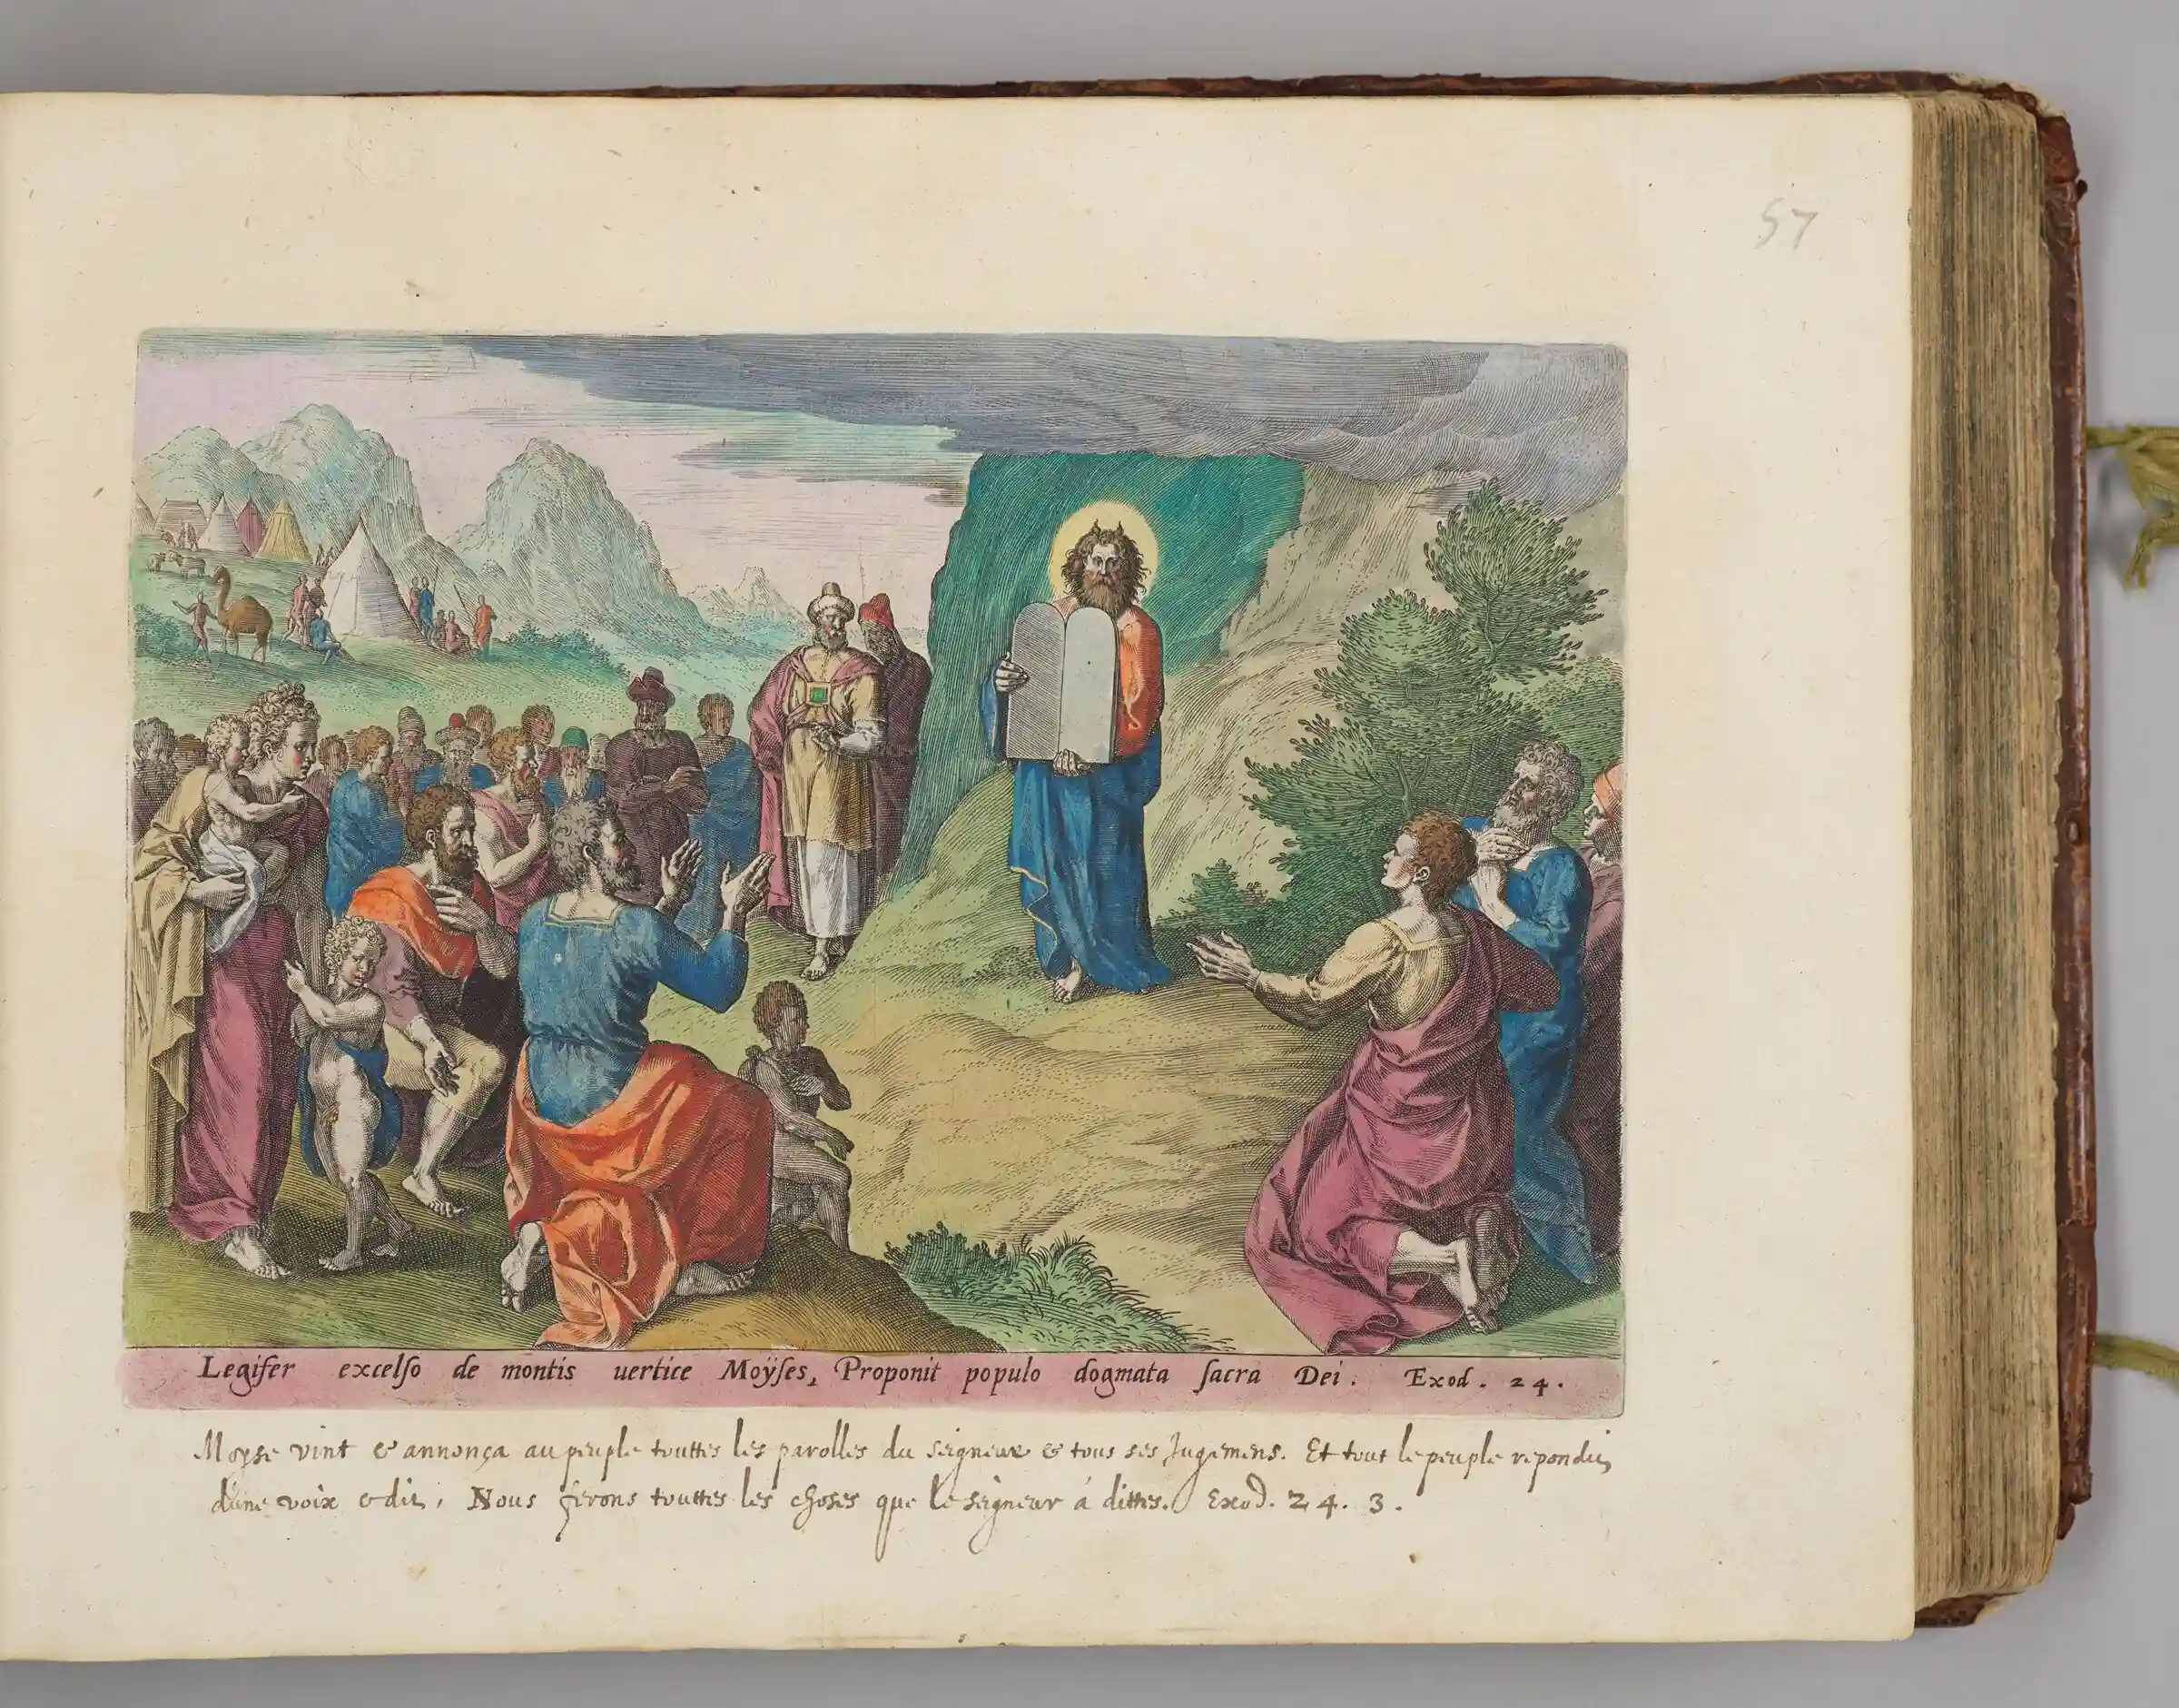 57
Legifer excelſo de montis uertice Moÿſes, Proponit populo dogmata ſacra Dei. Exod. 24.
Moyse vint & annonça au peuple touttes les parolles du seigneur & tous ses Jugemens. Et tout le peuple repondit
d'une voix & dit, Nous ferons touttes les choses que le seigneur à dittes. Exod. 24. 3.